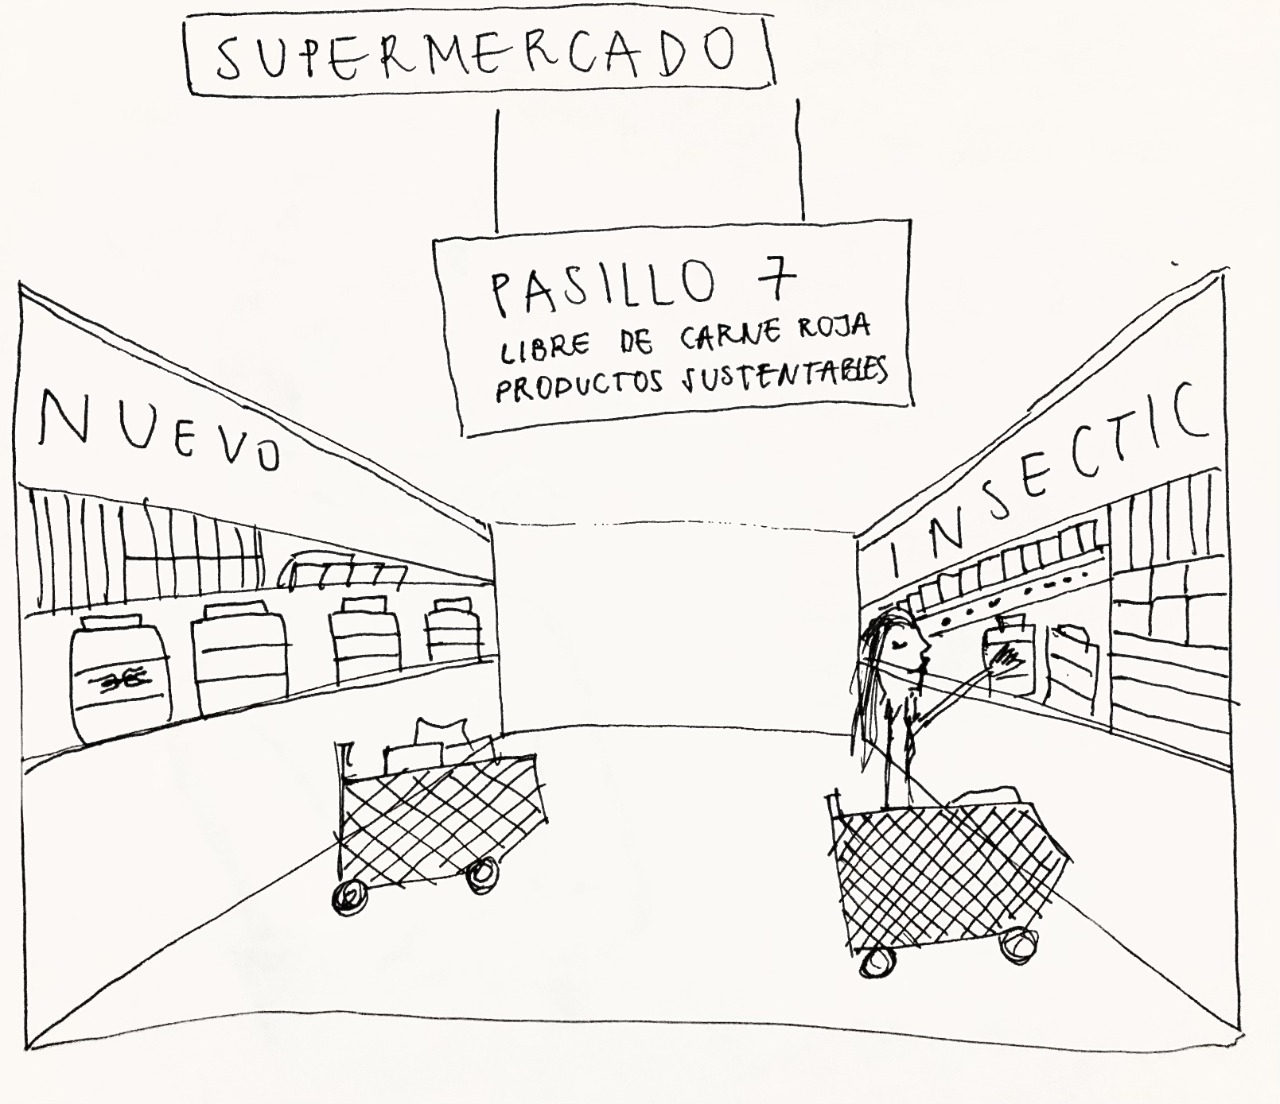 SUPERMERCADO
PASILLO 7
LIBRE DE CARNE ROJA
PRODUCTOS SUSTENTABLES
NUEVO
INSECTIC